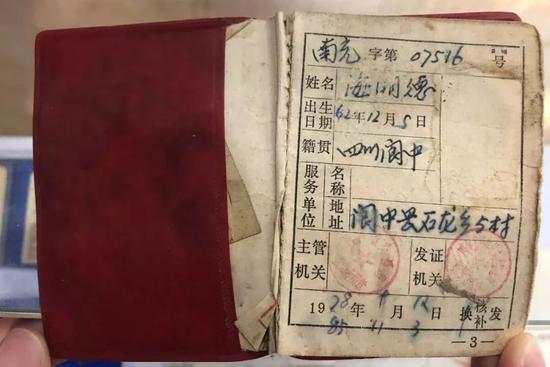 南充 字第 07516 号
姓名
出生日期 62年12月5日
籍贯 四川阆中
服务单位 名称
地址 阆中县石龙乡5村
主管机关 发证机关
1978年 月12日 换核补发
85 11 3
—3—